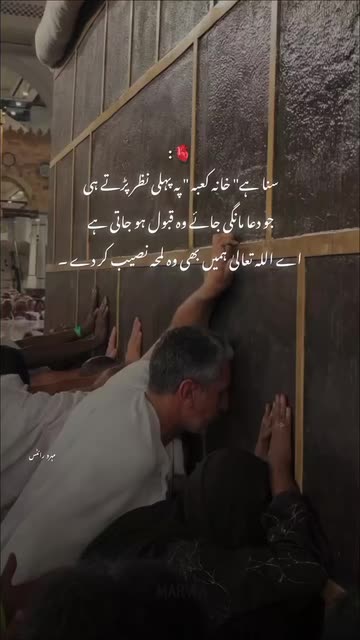 🫀 :
سنا ہے" خانہ کعبہ" پہ پہلی نظر پڑتے ہی
جو دعا مانگی جائے وہ قبول ہو جاتی ہے
اے اللہ تعالیٰ ہمیں بھی وہ لمحہ نصیب کر دے ۔